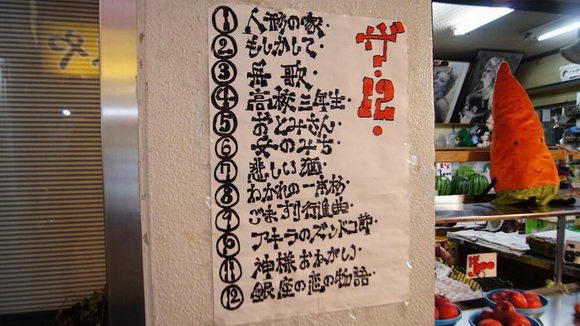 ザ・12・
① 人形の家・
② もしかして・
③ 歌・
④ 高校三年生・
⑤ おとみさん・
⑥ 女のみち・
⑦ 悲しい酒・
⑧ わかれの一本杉・
⑨ ごますり行進曲・
⑩ アキラのズンドコ節・
⑪ 神様おねがい・
⑫ 銀座の恋の物語・